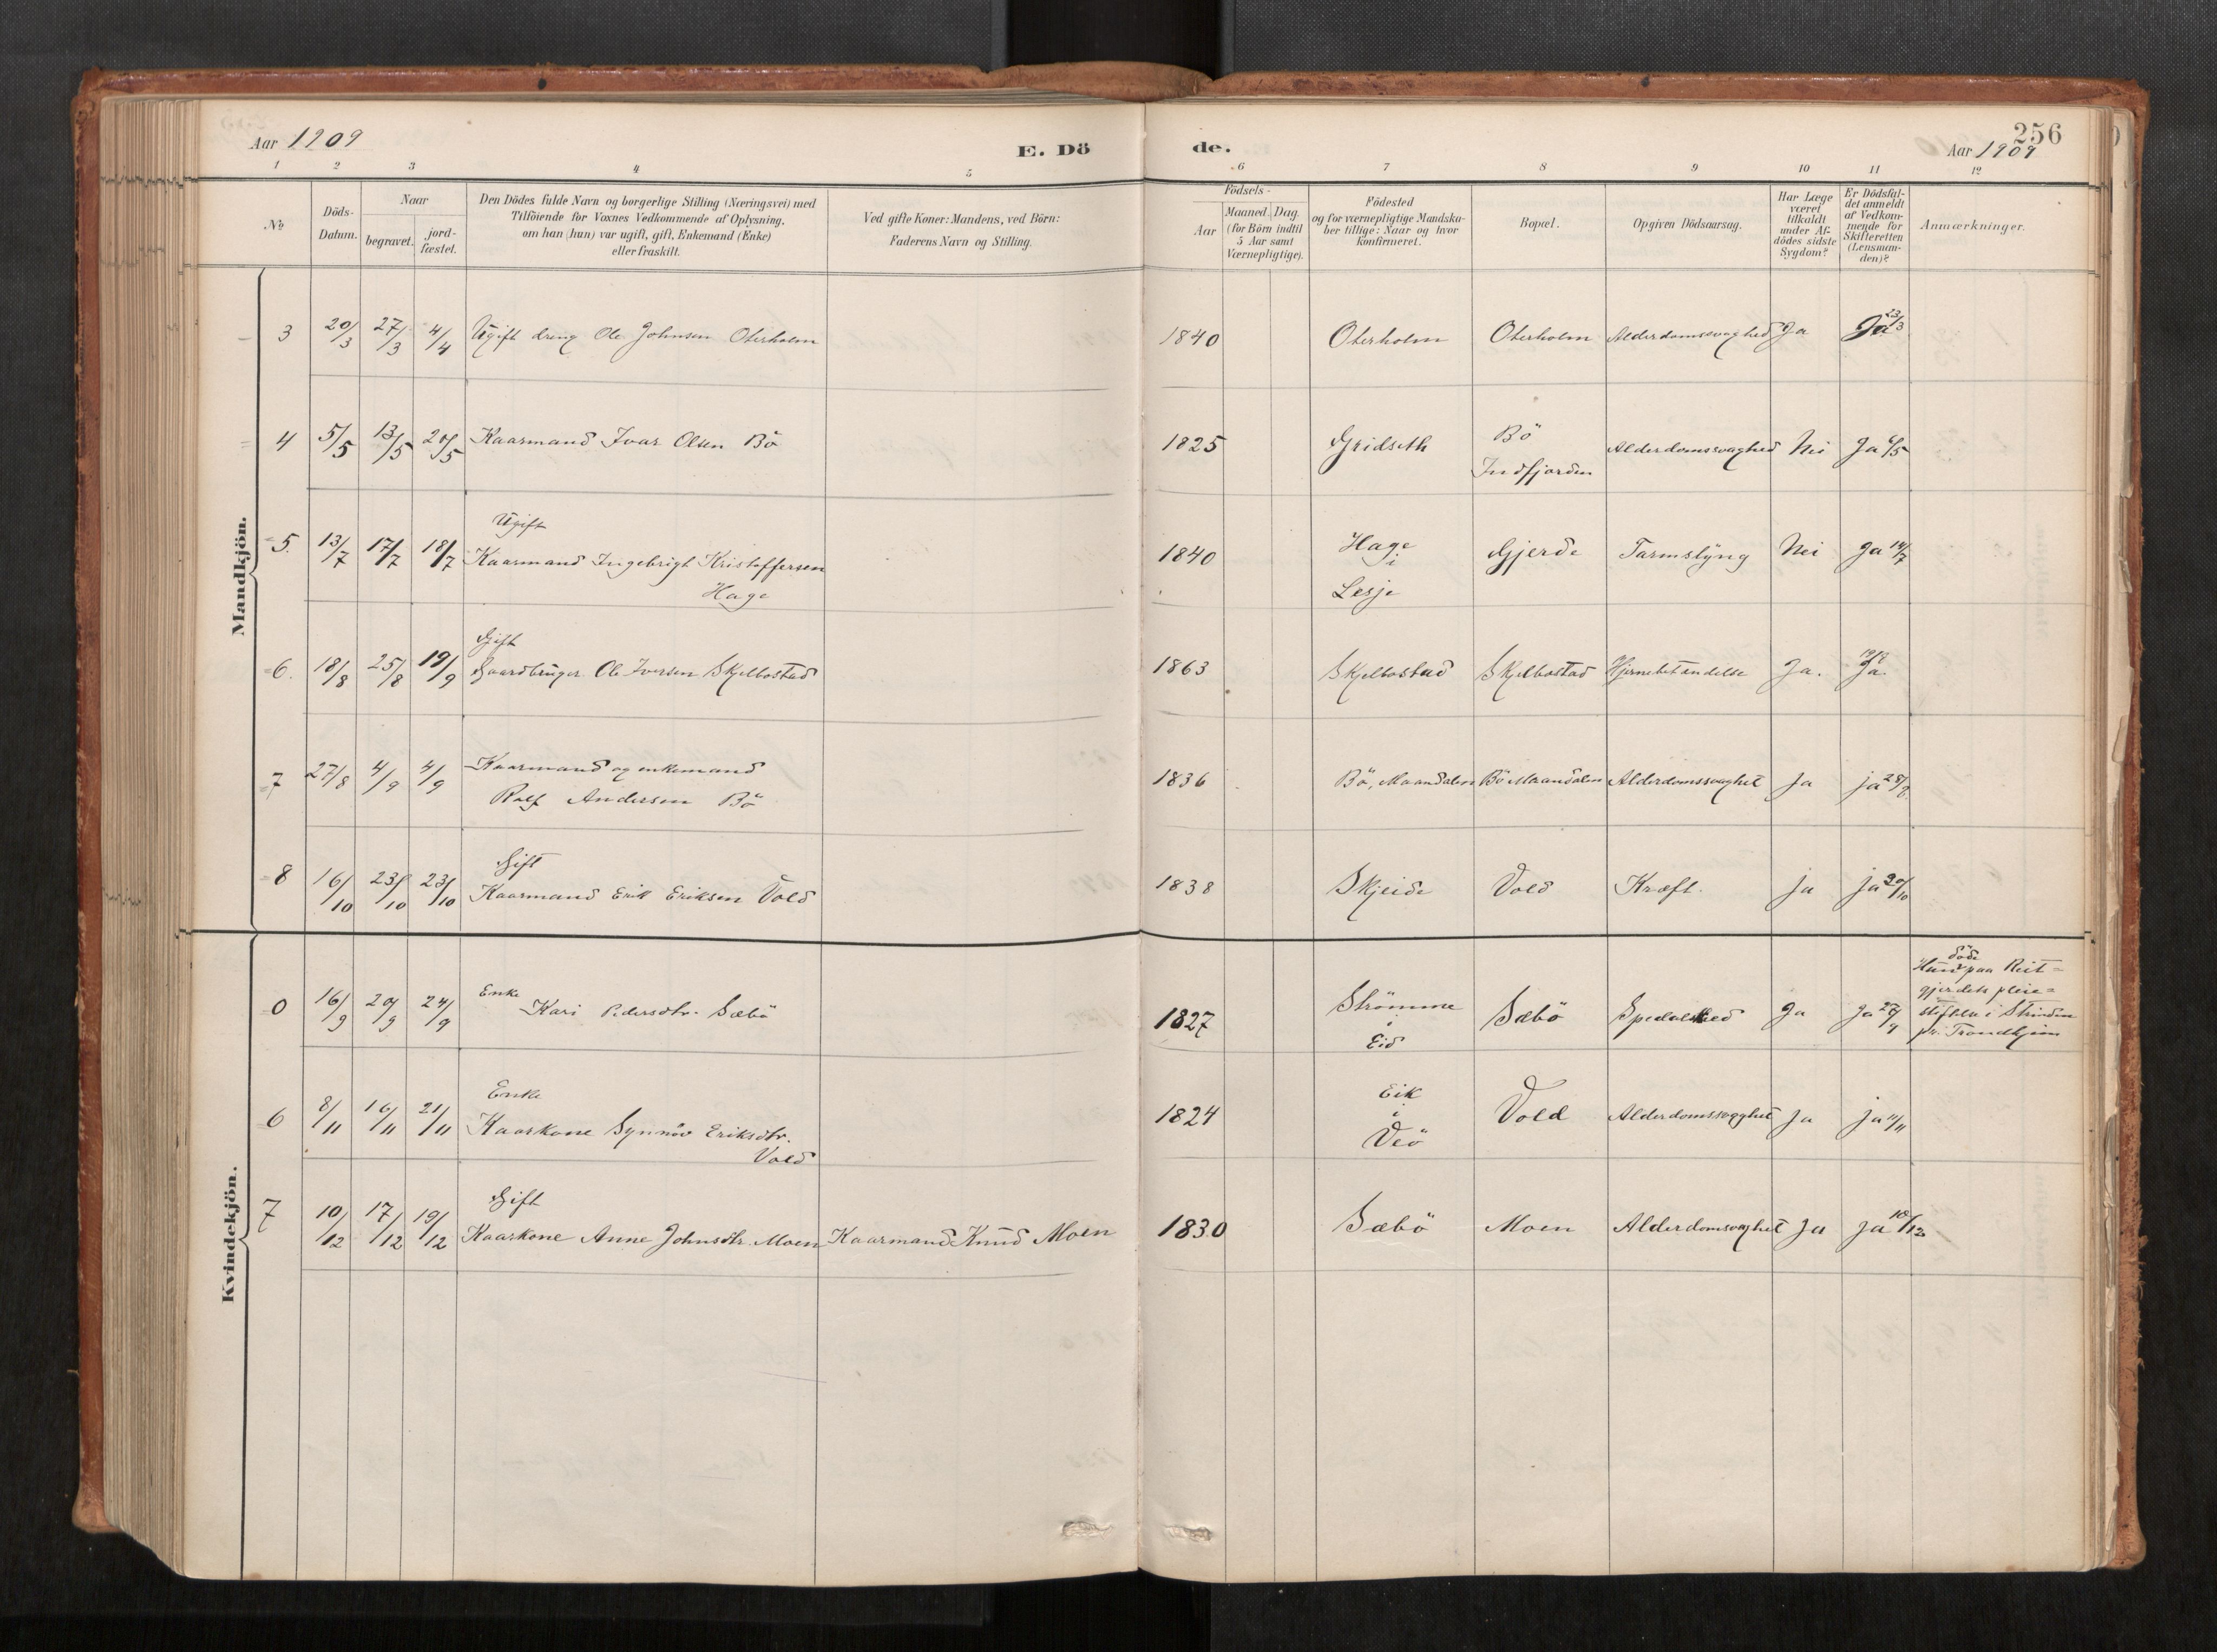 256
Aar 1909
E. Dö
de.
Aar 1909
1 2 3 4 5 6 7 8 9 10 11 12
№
Döds-
Datum.
Naar
begravet.
jord-
fæstet.
Den Dödes fulde Navn og borgerlige Stilling (Næringsvei) med
Tilföiende for Voxnes Vedkommende af Oplysning,
om han (hun) var ugift, gift, Enkemand (Enke)
eller fraskilt.
Ved gifte Koner: Mandens, ved Börn:
Faderens Navn og Stilling.
Födsels-
Aar
Maaned. Dag.
(for Börn indtil
5 Aar samt
Værnepligtige).
Födested
og for værnepligtige Mandska-
ber tillige: Naar og hvor
konfirmeret.
Bopæl.
Opgiven Dödsaarsag.
Har Læge
været
tilkaldt
under Af-
dödes sidste
Sygdom?
Er Dödsfal-
det anmeldt
af Vedkom-
mende for
Skifteretten
(Lensman-
den)?
Anmærkninger.
Mandkjön.
3 20/3 27/3 4/4 Ugift dreng Ole Johnsen Oterholm 1840 Oterholm Oterholm Alderdomssvaghed Ja Ja 23/3
4 5/5 13/5 20/5 Kaarmand Ivar Olsen Bö 1825 Gridseth Bö
Indfjorden
Alderdomssvaghed Nei Ja 6/5
Ugift
5. 13/7 17/7 18/7 Kaarmand Ingebrigt Kristoffersen
Hage
1840 Hage
i
Lesje
Gjerde Tarmslyng Nei Ja 14/7
Gift
6. 18/8 25/8 19/9 Gaardbruger Ole Iversen Skjelbostad 1863 Skjelbostad Skjelbostad Hjernebetændelse Ja. Ja. 19/8
7 27/8 4/9 4/9 Kaarmand og enkemand
Rolf Andersen Bö
1836 Bö, Maandalen Bö Maandalen Alderdomssvaghet Ja ja 28/8
Gift
8 16/10 23/10 23/10 Kaarmand Erik Eriksen Vold 1838 Skjeide Vold Kræft. ja ja 20/10
Kvindekjön.
0 16/9 20/9 24/9 Enke
Kari Pedersdtr. Sæbö
1827 Strömme
i
Eid
Sæbö Spedalsked Ja Ja 27/9
döde
Hun paa Reit=
gjerdets pleie=
stiftelse i Strinden
pr. Trondhjem
Enke
6 8/11 16/11 21/11 Kaarkone Synnöv Eriksdtr.
Vold
1824 Eik
i
Veö
Vold Alderdomssvaghet Ja ja 11/11
Gift
7 10/12 17/12 19/12 Kaarkone Anne Johnsdtr. Moen Kaarmand Knud Moen 1830 Sæbö Moen Alderdomsvaghet Ja Ja 18/12